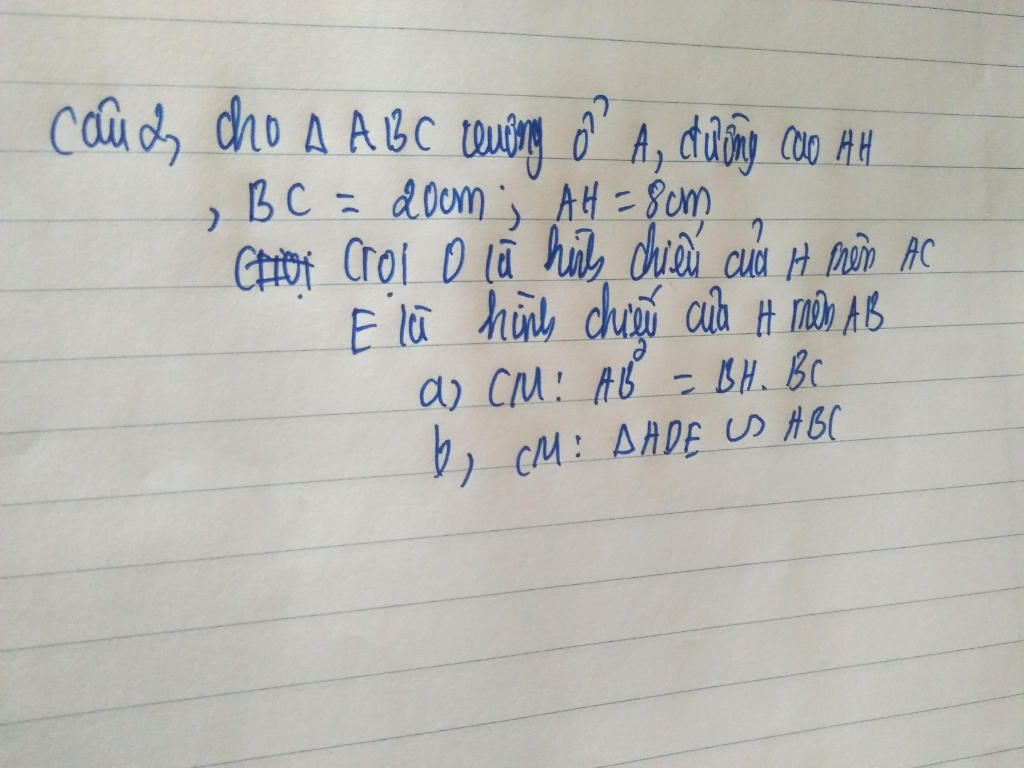 Câu 2, cho Δ ABC vuông ở A, đường cao AH
, BC = 20cm ; AH = 8cm
Gọi D là hình chiếu của H trên AC
E là hình chiếu của H trên AB
a) CM: AB² = BH. BC
b, CM: ΔADE ∽ ABC